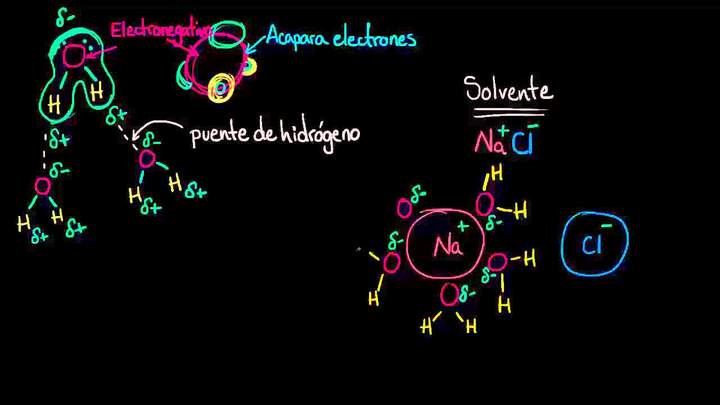 δ-
Electronegativo
Acapara electrones
O
H H
δ+ δ+
puente de hidrógeno
δ- δ-
O O
H H H H
δ+ δ+ δ+ δ+
Solvente
Na+ Cl-
H
O δ- O H
δ-
Na+ Cl-
δ- O δ- O H
H O δ- H
H H